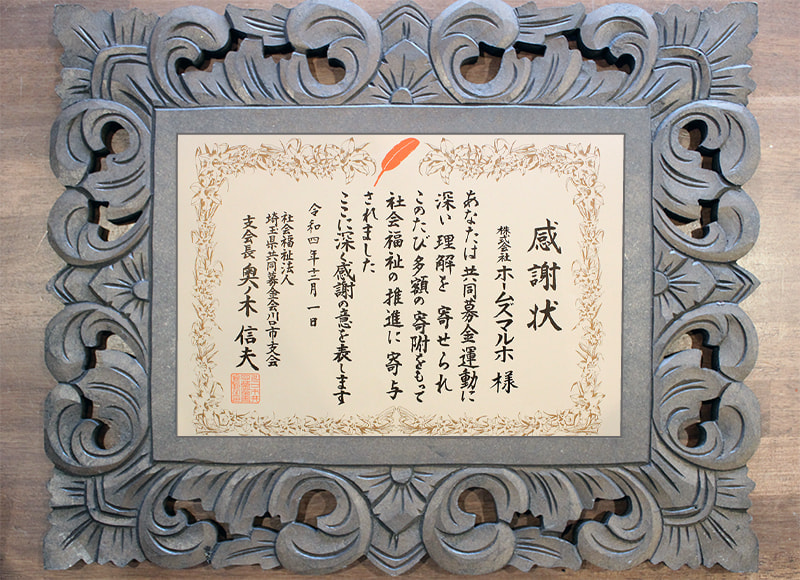 感謝状
株式会社 ホームズマルホ 様
あなたは共同募金運動に
深い理解を寄せられ
このたび多額の寄附をもって
社会福祉の推進に寄与
されました
ここに深く感謝の意を表します
令和四年十二月一日
社会福祉法人
埼玉県共同募金会川口市支会
支会長 奥ノ木信夫